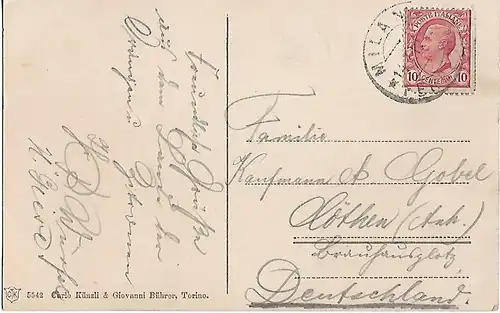 Freundliche Grüße
aus dem Lande der
Orangen u. Zitronen
MILANO
POSTE ITALIANE
10 CENTESIMI 10
Familie
Kaufmann A Gobel
Cöthen (Anh.)
Brauhausplatz
Deutschland.
5542 Carlo Künzli & Giovanni Bührer, Torino.